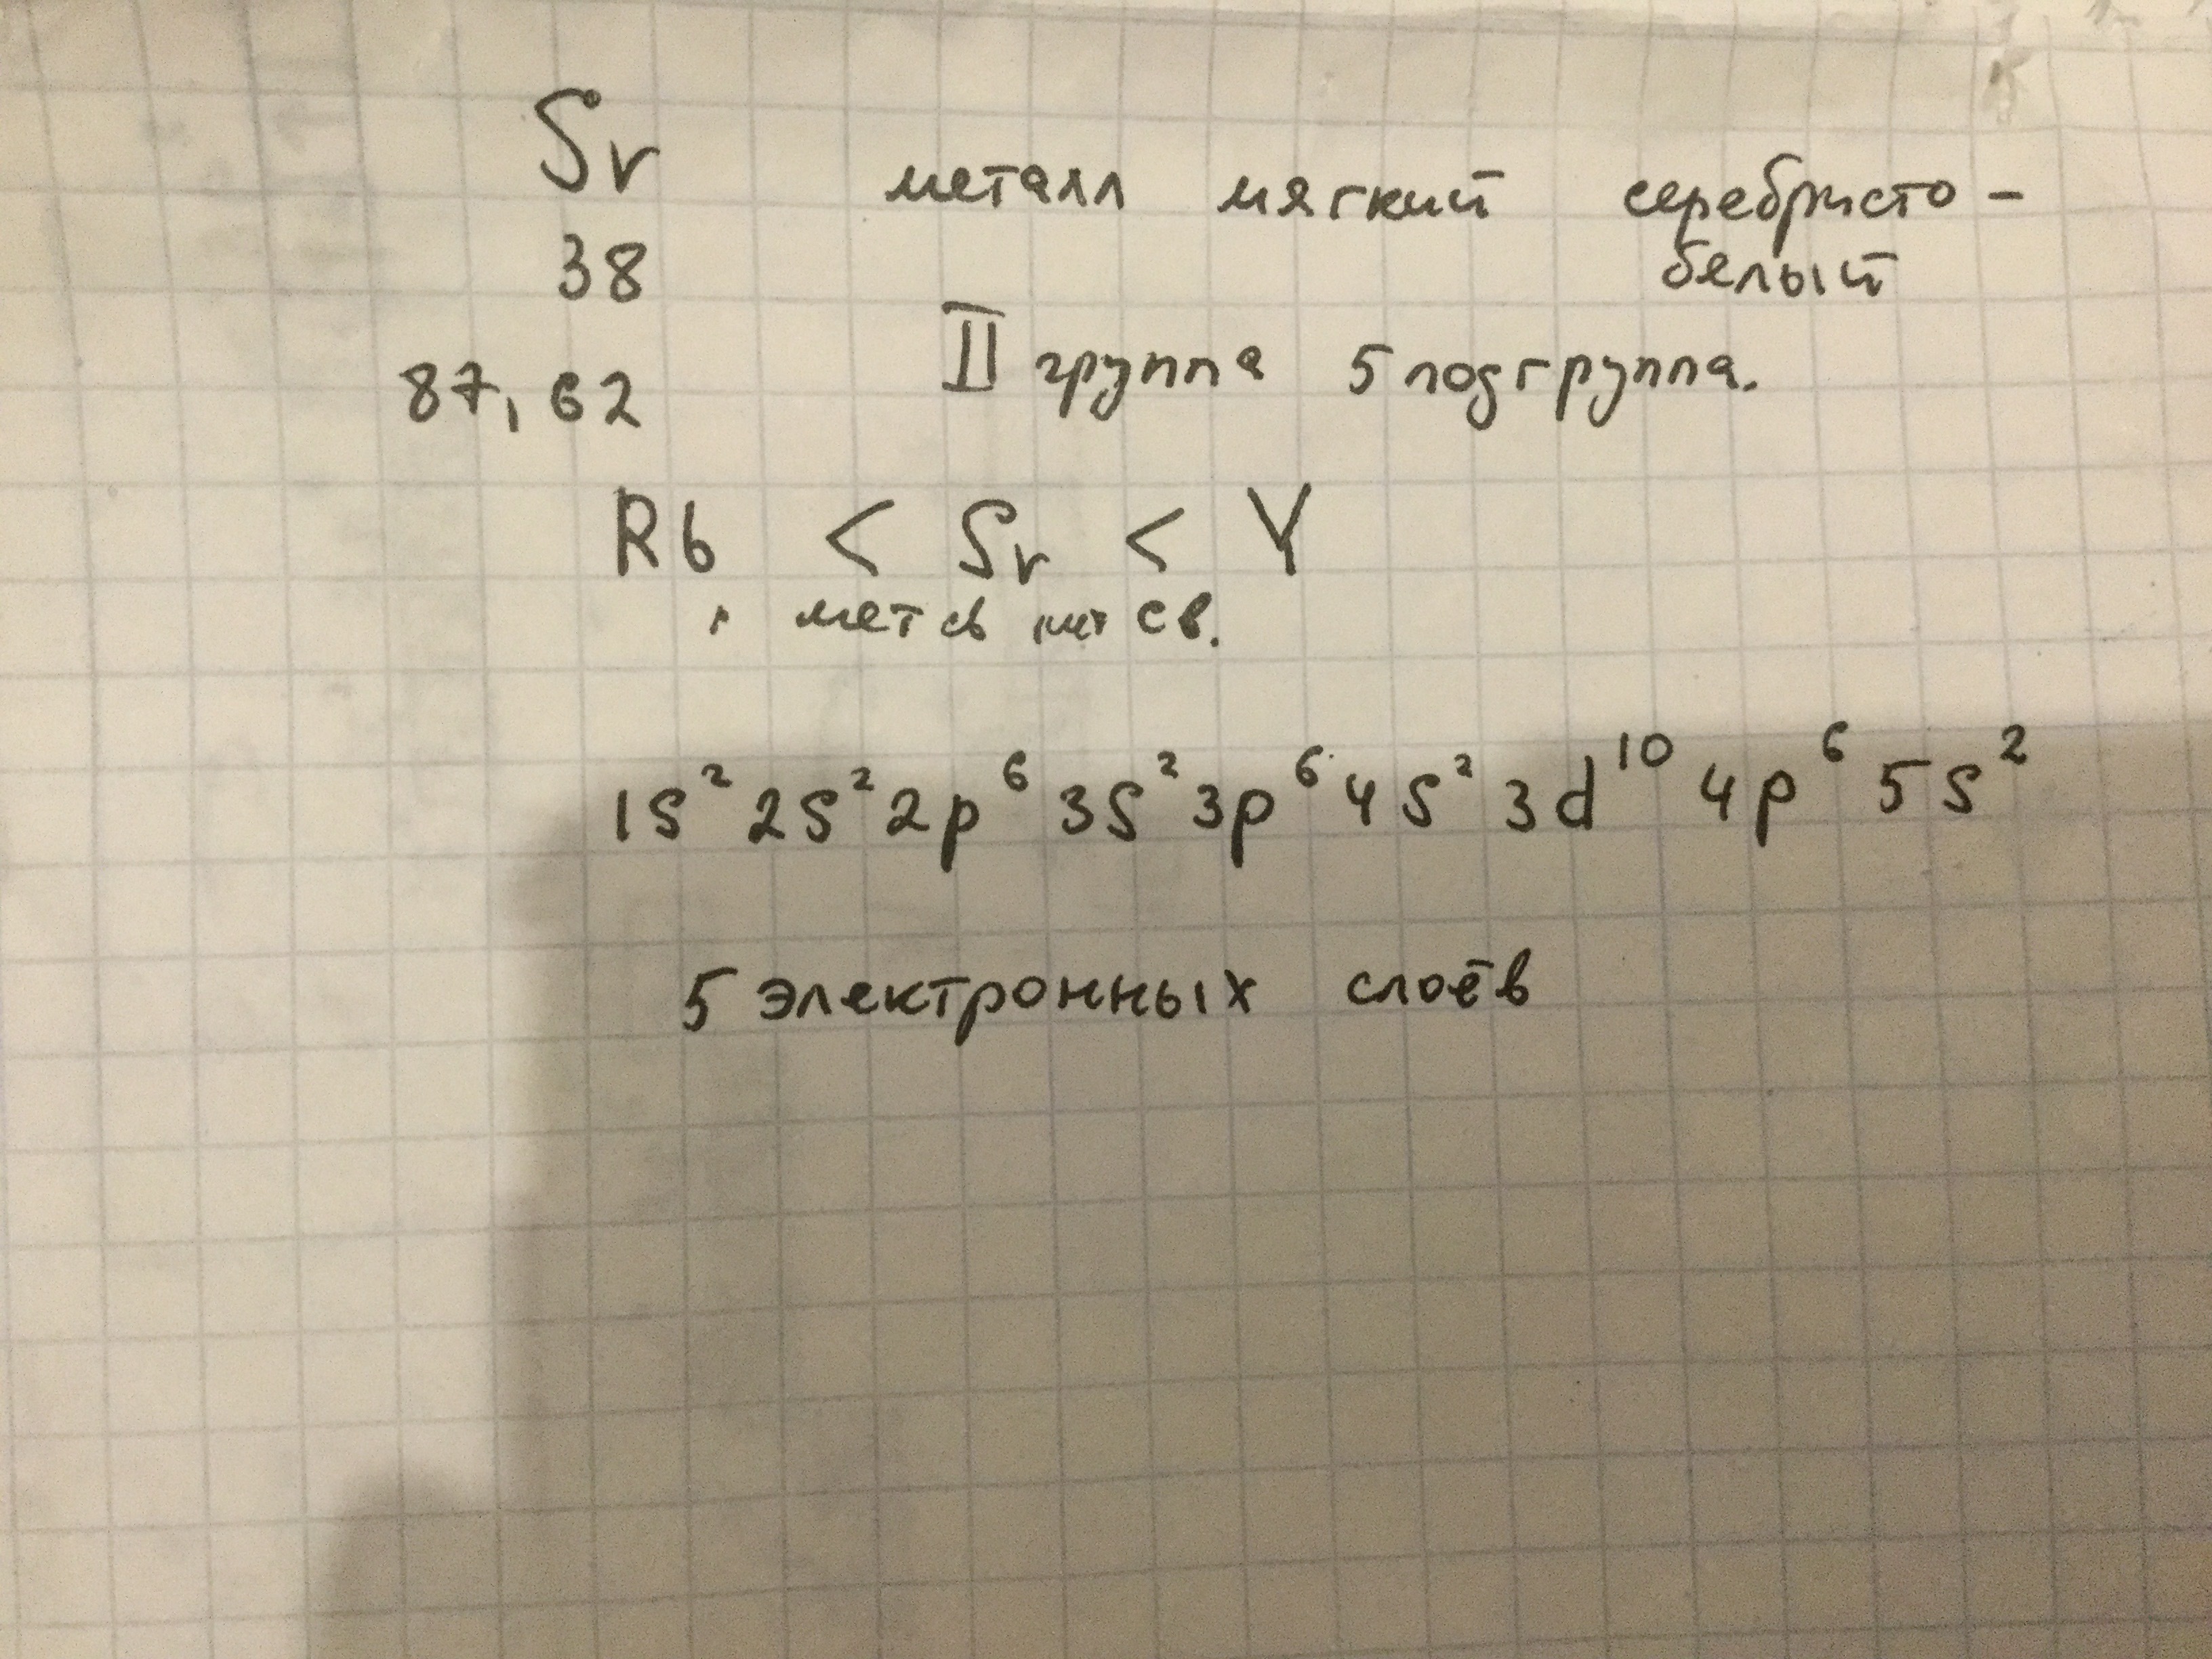 Sr металл мягкий серебристо-
38 белый
87,62 II группа 5 подгруппа.
Rb < Sr < Y
мет св св.
1s² 2s² 2p⁶ 3s² 3p⁶ 4s² 3d¹⁰ 4p⁶ 5s²
5 электронных слоёв